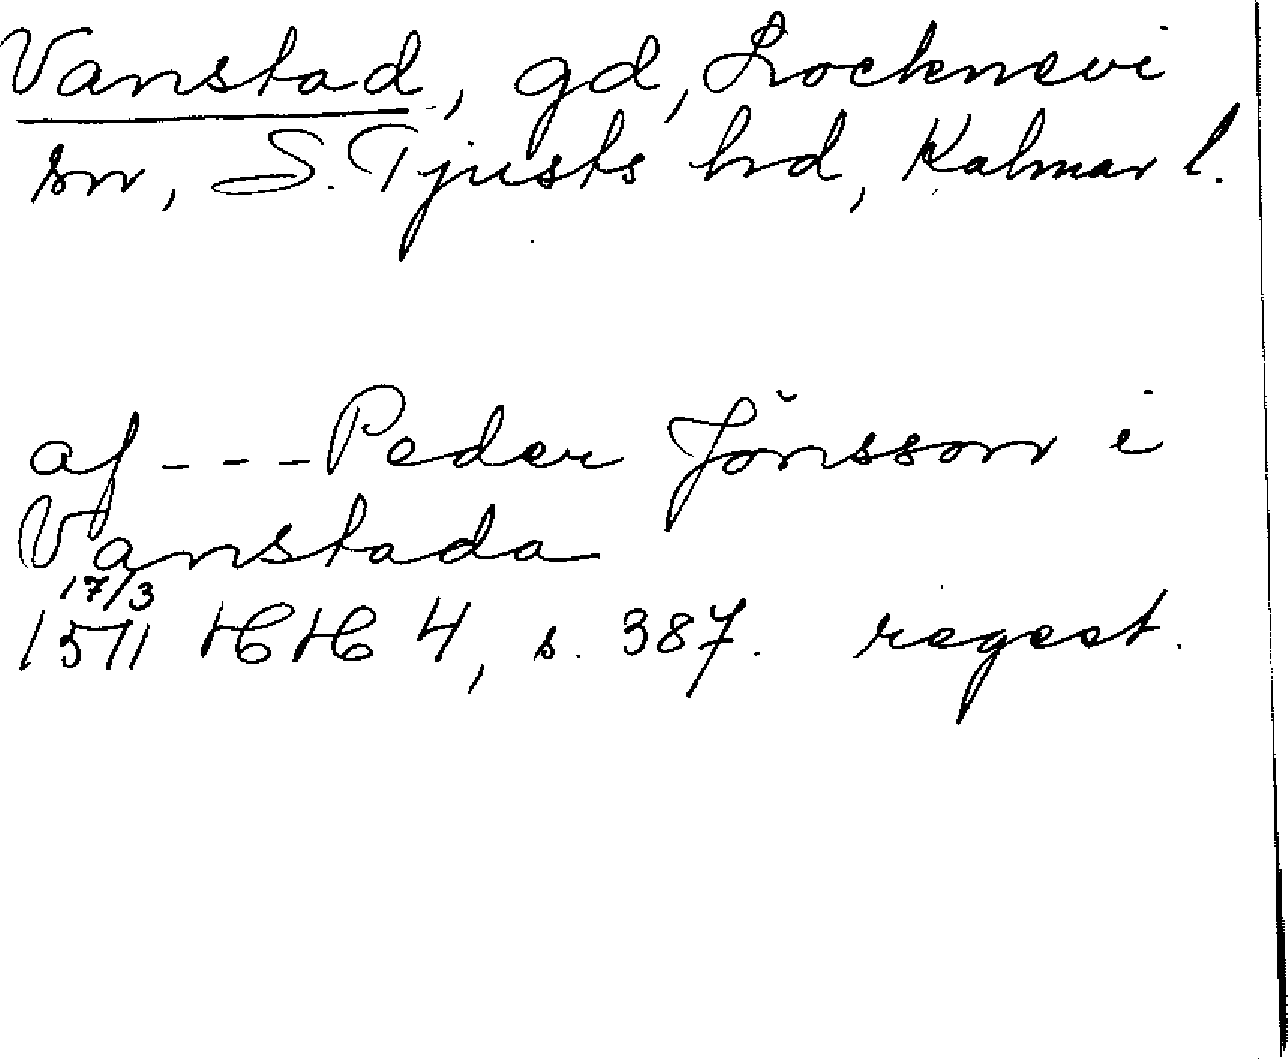 Vanstad, gd, Locknevi
sn, S. Tjusts hd, Kalmar l.
af - - - Peder Jönsson i
Vanstada
17/3
1571 HH 4, s. 387. regest.